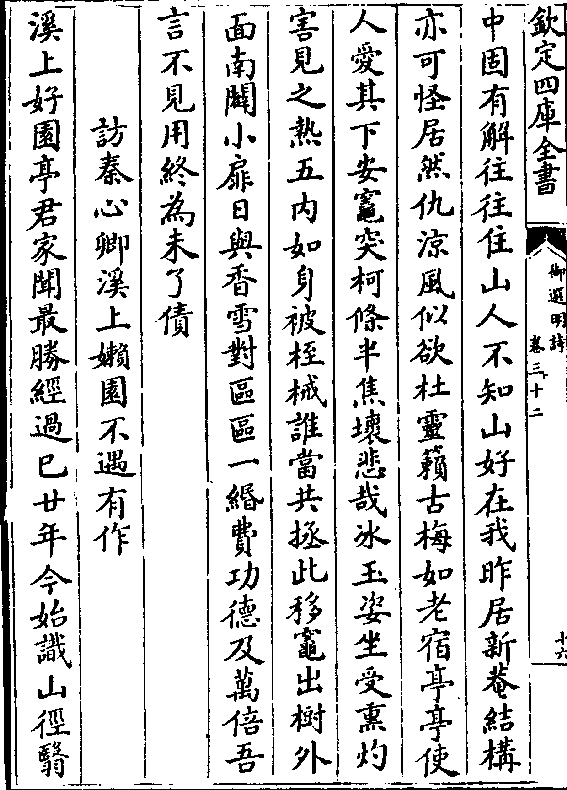 欽定四庫全書
御選明詩
卷三十二
十六
中固有解往往住山人不知山好在我昨居新菴結構
亦可怪居然仇涼風似欲杜靈籟古梅如老宿亭亭使
人愛其下安竈突柯條半焦壞悲哉冰玉姿坐受熏灼
害見之熱五内如身被桎械誰當共拯此移竈出樹外
面南闢小扉日與香雪對區區一緡費功德及萬倍吾
言不見用終為未了債
訪秦心卿溪上嬾園不遇有作
溪上好園亭君家聞最勝經過已廿年今始識山徑翳